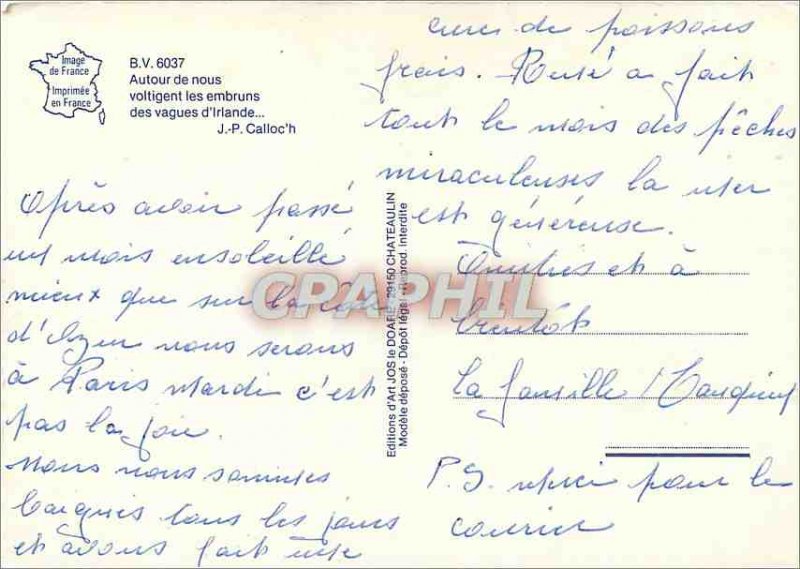 Image
de France
Imprimée
en France
B.V. 6037
Autour de nous
voltigent les embruns
des vagues d'Irlande...
J.-P. Calloc'h
Après avoir passé
un mois ensoleillé
mieux que sur la côte
d'Azur nous serons
à Paris mardi c'est
pas la joie.
Nous nous sommes
baignés tous les jours
et avons fait une
Editions d'Art JOS le DOARÉ, 29150 CHATEAULIN
Modèle déposé - Dépôt légal - Reprod. interdite
CPAPHIL
cure de poissons
frais. René a fait
tout le mois des pêches
miraculeuses la mer
est généreuse.
Amitiés et à
bientôt
La famille
P.S. merci pour le
courrier